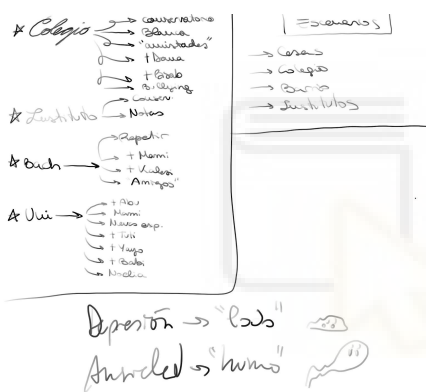 * Colegio → conservatorio
→ Blanca
→ "amistades"
→ + Dama
→ + Bisab
→ Bullying
* Instituto → Conser.
→ Notas
* Bach → Repetir
→ + Mami
→ Amigos"
* Uni → + Abu
→ Mami
→ Nueva esp.
→ + Tuli
→ + Yayo
→ + Babi
→ Noelia
Escenarios
→ Casas
→ Colegio
→ Barrio
→ Institutos
Depresión → "lodo"
Ansiedad → "humo"